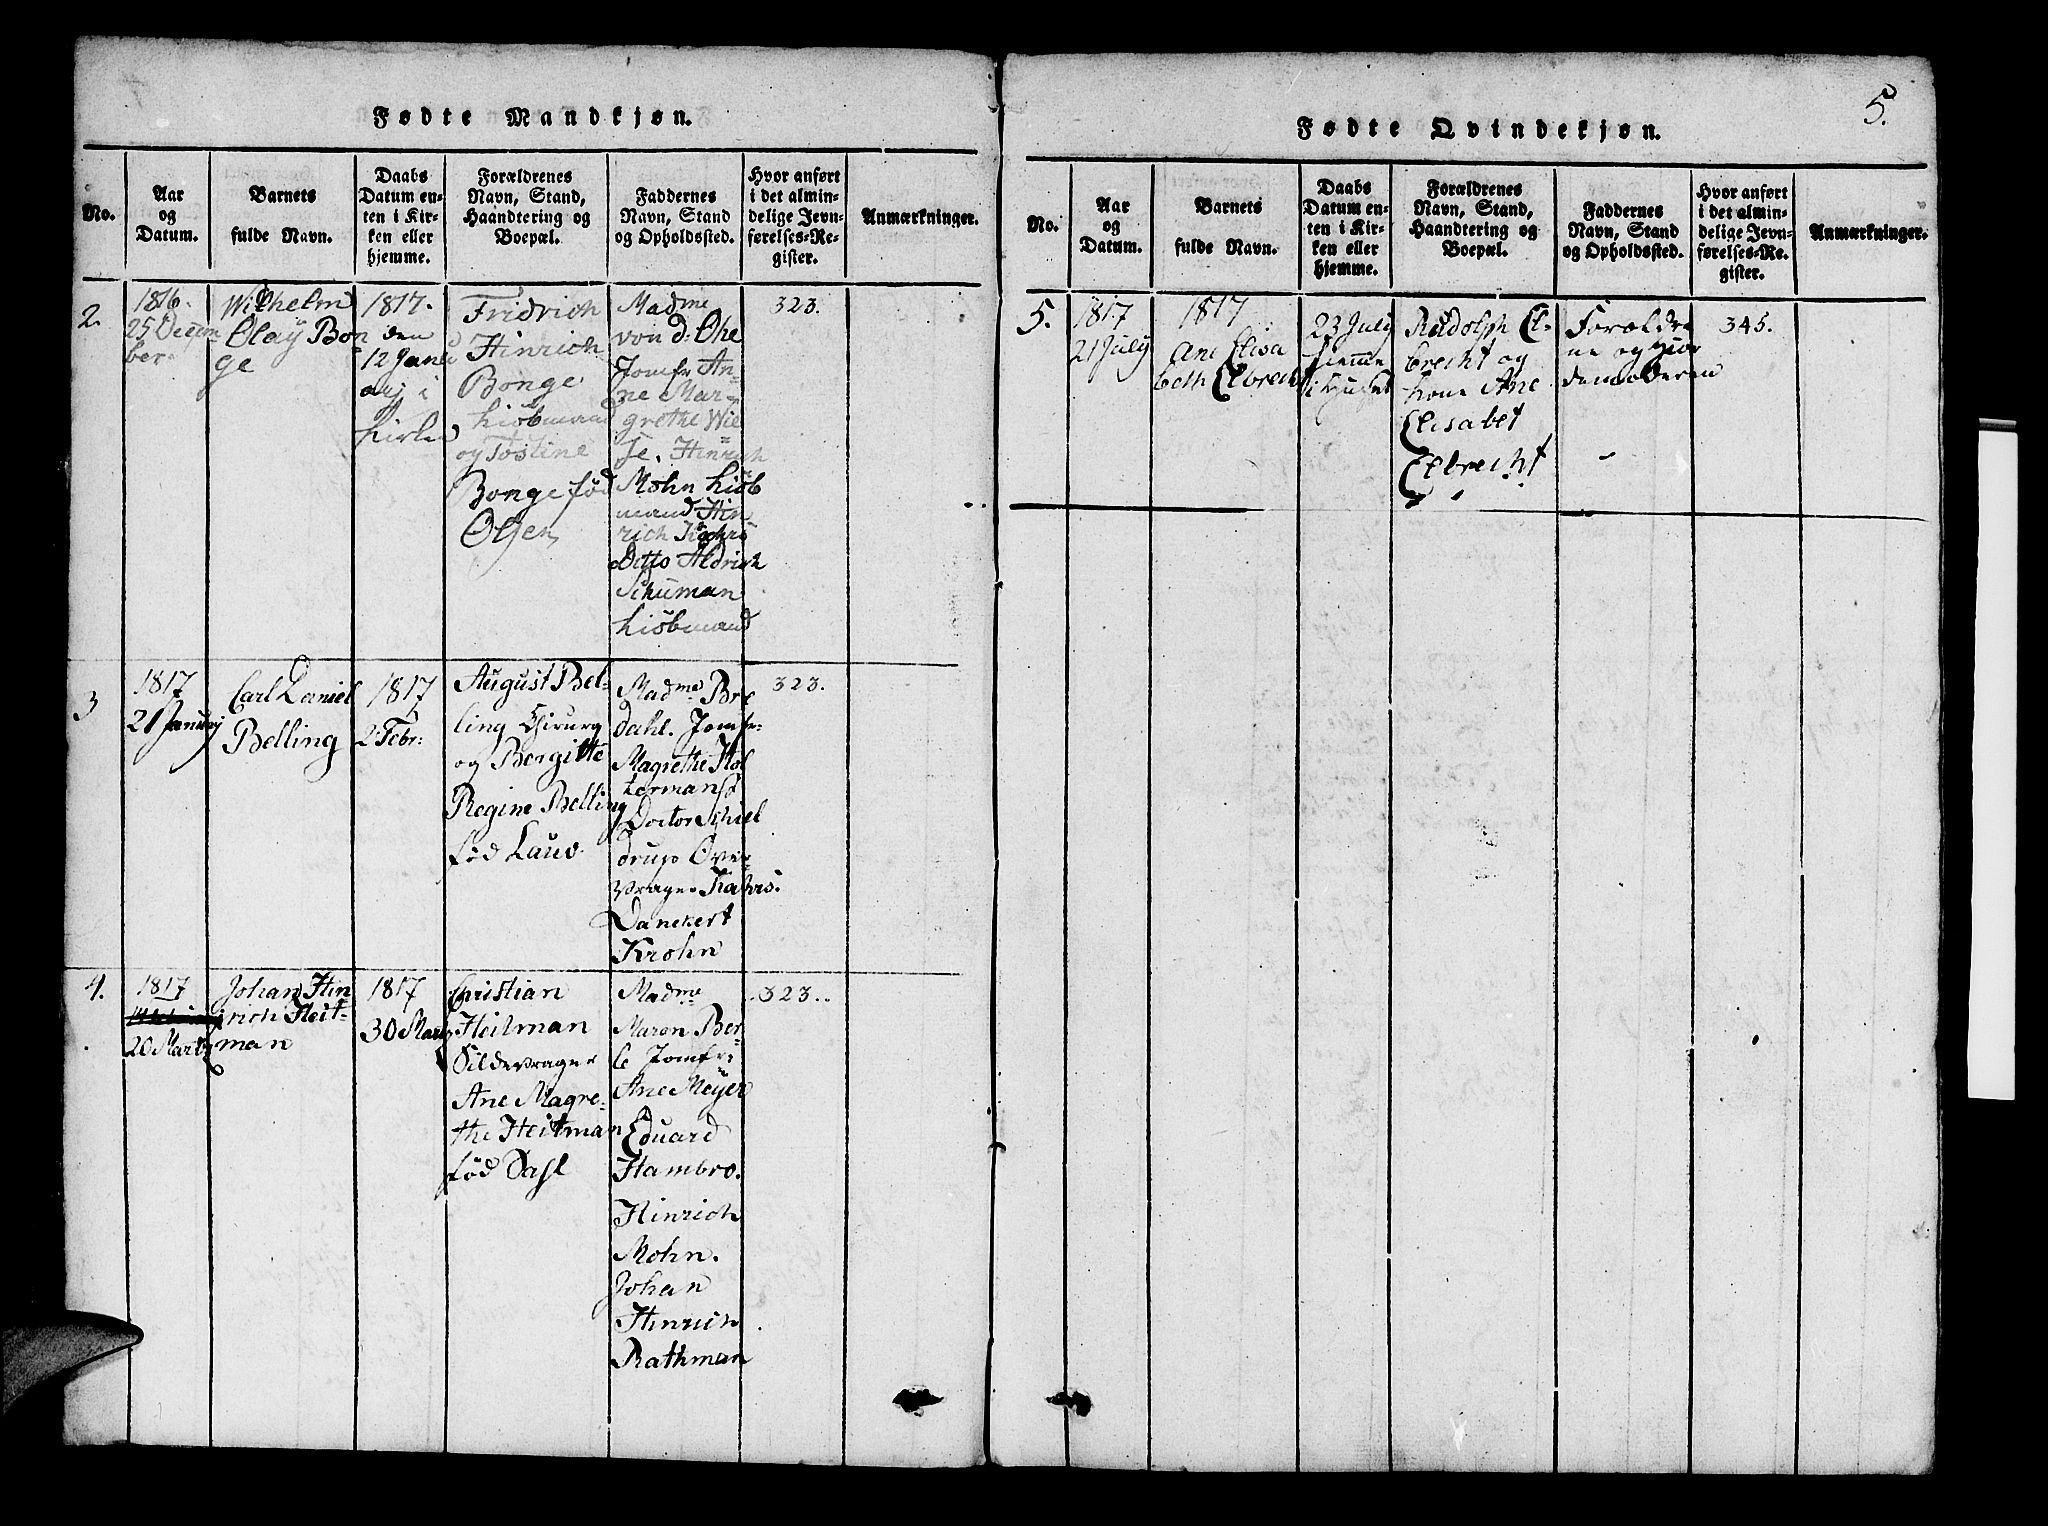 Fødte Mandkjøn.
No.
Aar
og
Datum.
Barnets
fulde Navn.
Daabs
Datum en-
ten i Kir-
ken eller
hjemme.
Forældrenes
Navn, Stand,
Haandtering og
Boepæl.
Faddernes
Navn, Stand
og Opholdssted.
Hvor anført
i det almin-
delige Jevn-
førelses-Re-
gister.
Anmærkninger.
2.
1816.
25 Decem
ber.
Wilhelm
Olaÿ Bon
ge
1817.
den
12 Janu
arj i
kirken
Fridrich
Hinrich
Bonge
kiöbmand
og Tostine
Bonge fød
Olsen
Madme
von d: Ohe
Jomfr An-
ne Mar-
grethe Wie
se. Hinrich
Mohn kiöb
mand Hin
rich Kahrs
Ditto Aldrich
Schuman
kiöbmand
323.
3
1817
21 Januarj
Carl Daniel
Belling
1817
2 Febr:
August Bel-
ling Chirurg
og Bergitte
Regine Belling
fød Lauv
Madme Bre
dahl. Jomfr:
Magrethe Hol
termans
Doctor Schiel
drup Over-
vrager Kahrs.
Danckert
Krohn
323.
4.
1817
20 Marty
Johan Hin
rich Heit-
man
1817
30 Marty
Christian
Heitman
Sildevrager
Ane Magre-
the Heitman
fød Dahl
Madme
Maren Ber-
le Jomfr:
Ane Meÿer
Eduard
Hambro.
Hinrich
Mohn.
Johan
Hinrich
Rathman
323..
5.
Fødte Qvindekjøn.
No.
Aar
og
Datum.
Barnets
fulde Navn.
Daabs
Datum en-
ten i Kir-
ken eller
hjemme.
Forældrenes
Navn, Stand,
Haandtering og
Boepæl.
Faddernes
Navn, Stand
og Opholdssted.
Hvor anført
i det almin-
delige Jevn-
førelses-Re-
gister.
Anmærkninger.
5.
1817
21 July
1817
Ane Elisa
beth Elbrecht
23 July
hjemme
i huset
Rudolph El-
brecht og
kone Ane
Elisabet
Elbrecht
Forældre
ne og Jior
demoderen
345.